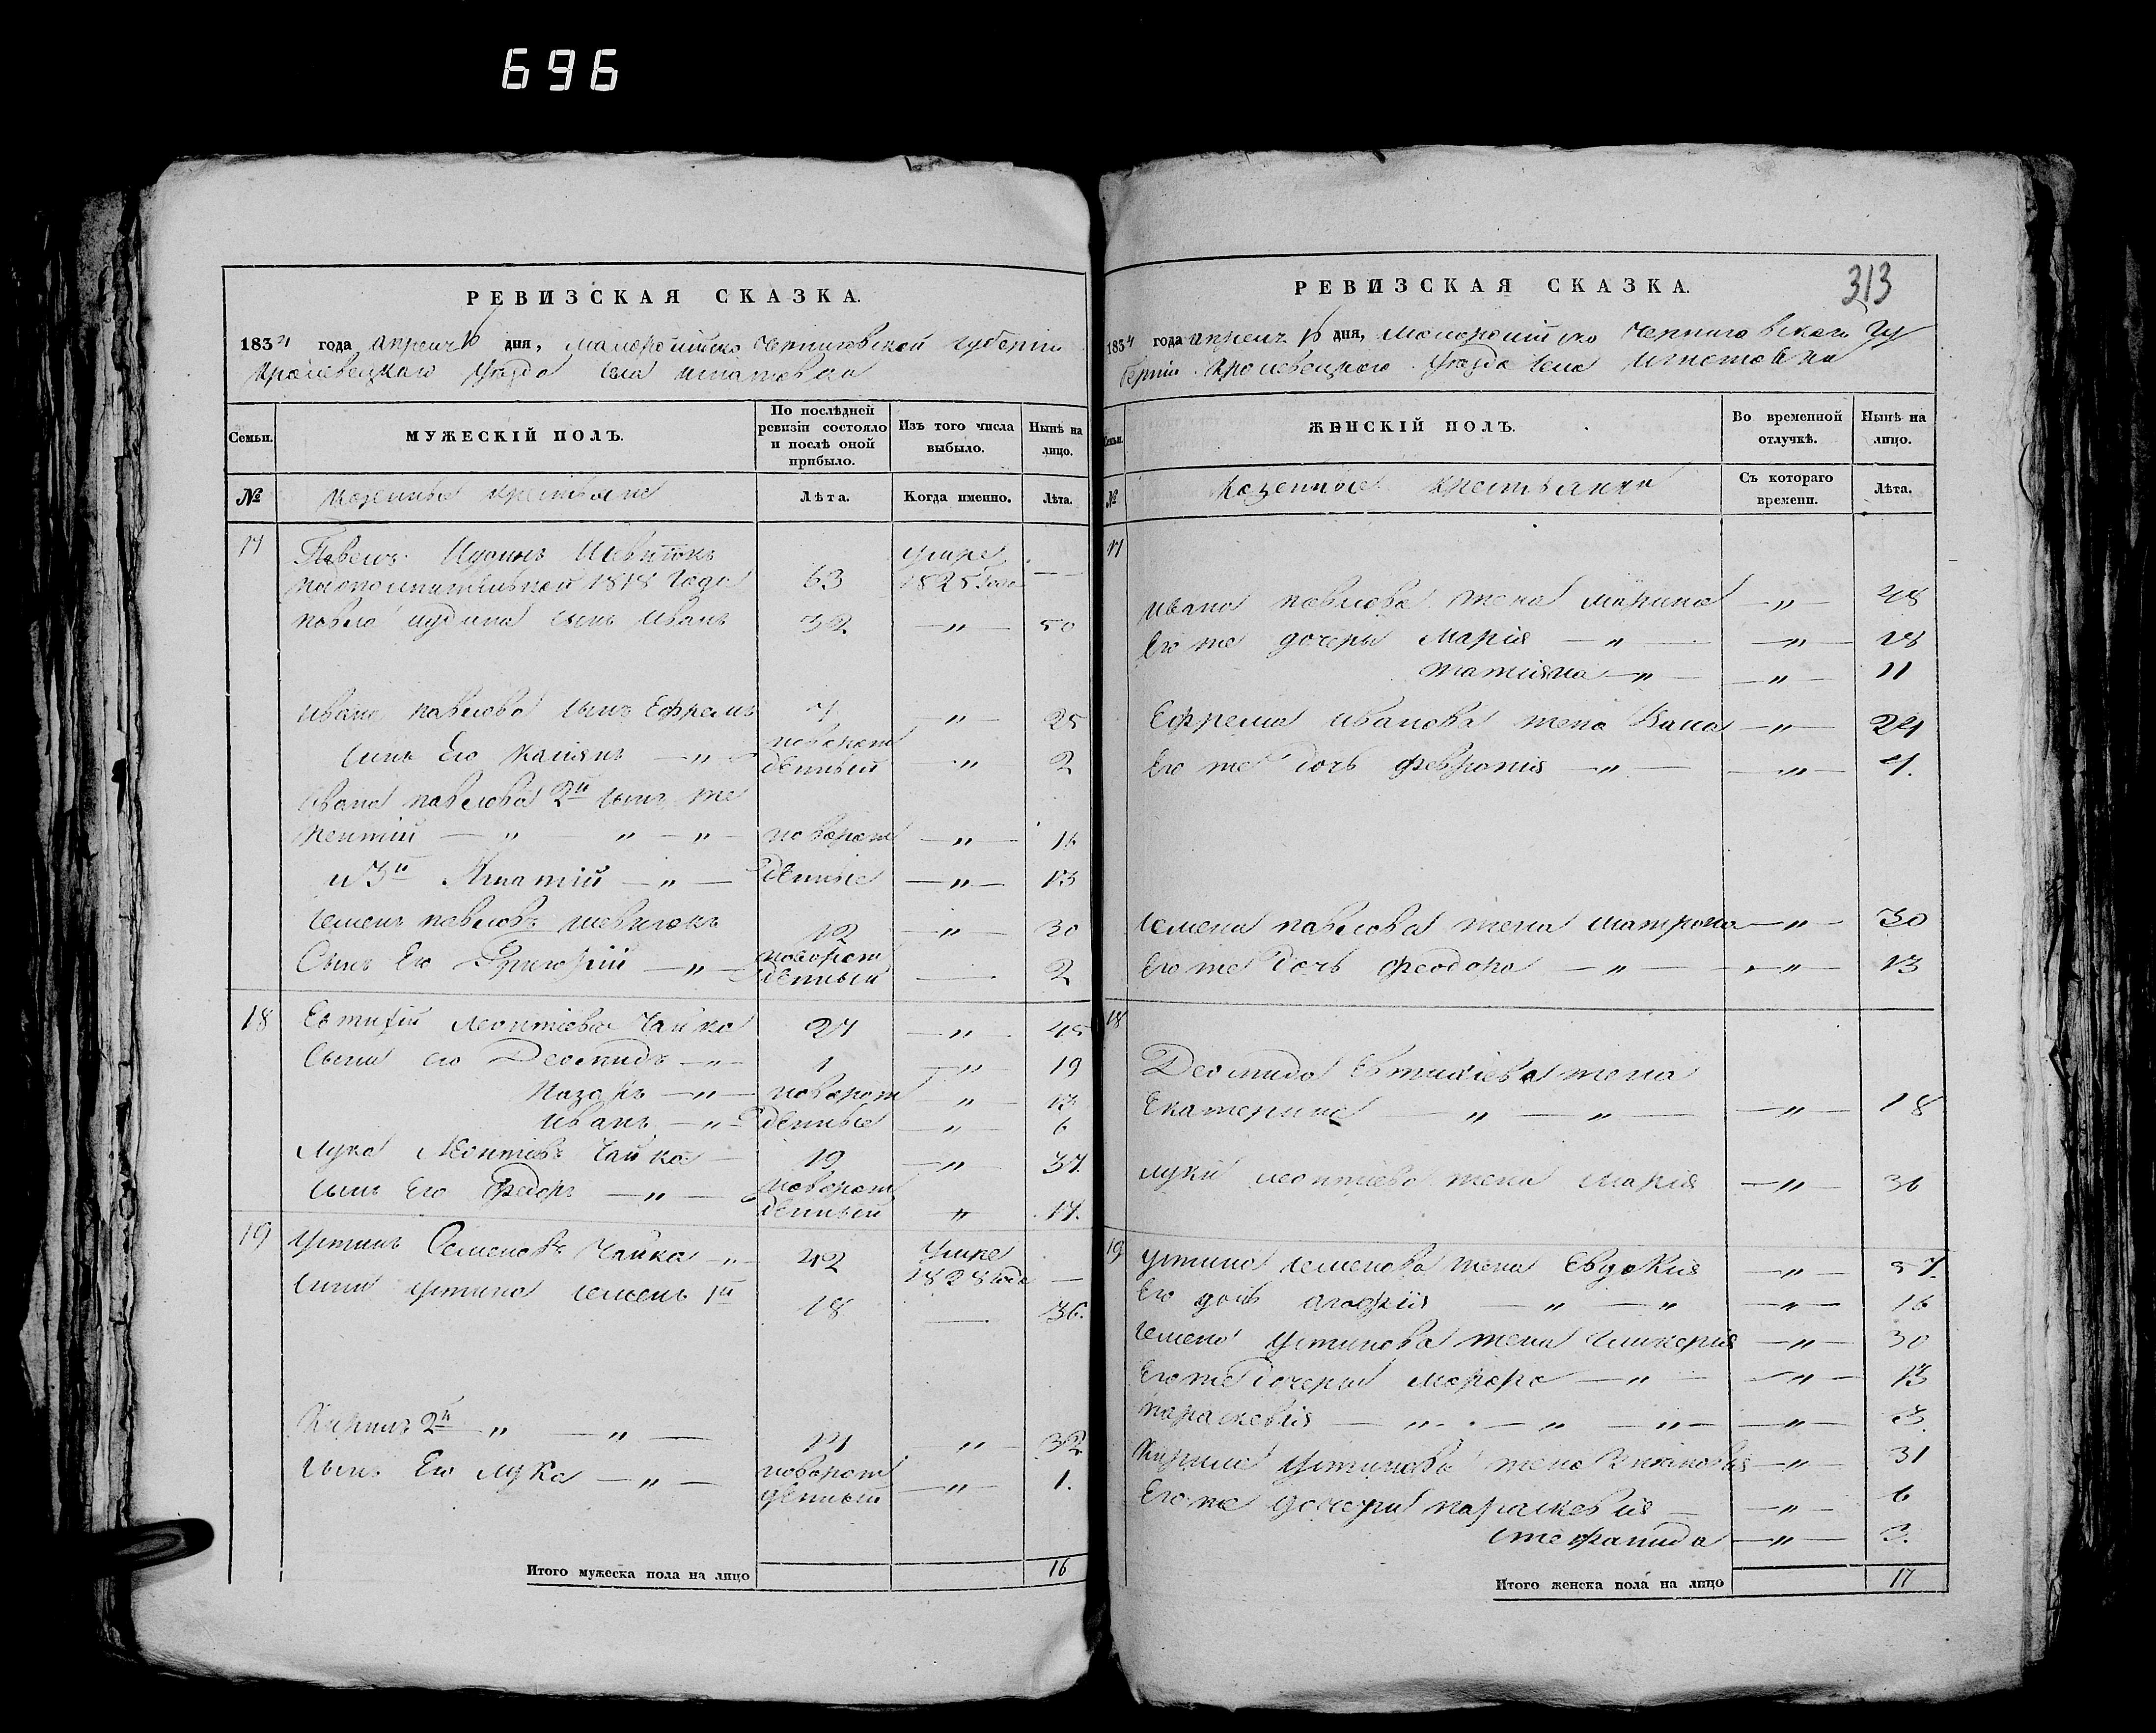 696
РЕВИЗСКАЯ СКАЗКА.
1834 года апреля 16 дня, Малороссійско Черниговской губерніи
Кролевецкаго уезда села Игнатовки
Семьи.
МУЖЕСКІЙ ПОЛЪ.
По послѣдней ревизіи состояло и послѣ оной прибыло.
Изъ того числа выбыло.
Нынѣ на лицо.
№
Казенные крестьяне
Лѣта.
Когда именно.
Лѣта.
17
Павелъ Иудинъ умре
1818 Года 63 1825 года —
Павла Иудина сынъ Иванъ 32 — „ — 50
Ивана Павлова сынъ Ефремъ 7 — „ — 25
сынъ Его Касіянъ — „ — новорожденный — „ — 2
Ивана Павлова 2й сынъ Те
рентій — „ „ — „ — новорож — „ — 16
и 3й Игнатій — „ — денные — „ — 13
Семенъ Павловъ 12 — „ — 30
Сынъ Его Григорій — „ — новорожденный — 2
18 Евтихій Леонтіевъ Чайка 27 — „ — 45
Сыни его Деомидъ — „ — 1 — „ — 19
Назаръ — „ — новорож — „ — 13
Иванъ — „ — денные — „ — 6
Лука Леонтіевъ Чайка — 19 — „ — 37.
сынъ Его Федоръ — „ — новорожденный „ 17.
19 Устинъ Семеновъ Чайка — „ — 42 умре 1828 года —
сыни Устина Семенъ 1й 18 — 36.
Кирилъ 2й — „ — „ — 14 — „ — 32
сынъ Его Лука — „ — новорожденный — „ — 1.
Итого мужеска пола на лицо 16
РЕВИЗСКАЯ СКАЗКА.
313
1834 года апреля 16 дня, Малороссійско Черниговской Гу
берніи Кролевецкаго Уезда села Игнатовки
Семьи.
ЖЕНСКІЙ ПОЛЪ.
Во временной отлучкѣ.
Нынѣ на лицо.
№
Казенные крестьянки
Съ котораго времени.
Лѣта.
17
Ивана Павлова жена Марина — „ — 48
Его же дочери Марія — „ — — „ — 18
Татіяна — „ — — „ — 11
Ефрема Иванова жена — „ — 24
Его же дочь Февронія — „ — — „ — 4.
Семена Павлова жена Матрона — „ — 30
Его же дочь Феодора — „ — — „ — 13
18
Деомида Евтихіева жена
Екатерина — „ — „ — — „ — 18
Луки Леонтіева жена Марія — „ — 36
19 Устина Семенова жена Евдокия — „ — 57.
Его дочь Агафія — „ — „ — „ — 16
Семена Устинова жена Гликерія — „ — 30
Его же дочери — „ — — „ — 13
Параскевія — „ — „ — „ — — „ — 3.
Кирила Устинова жена — „ — 31
Его же дочери Параскевія — — „ — 6
Стефанида — „ — 3.
Итого женска пола на лицо 17